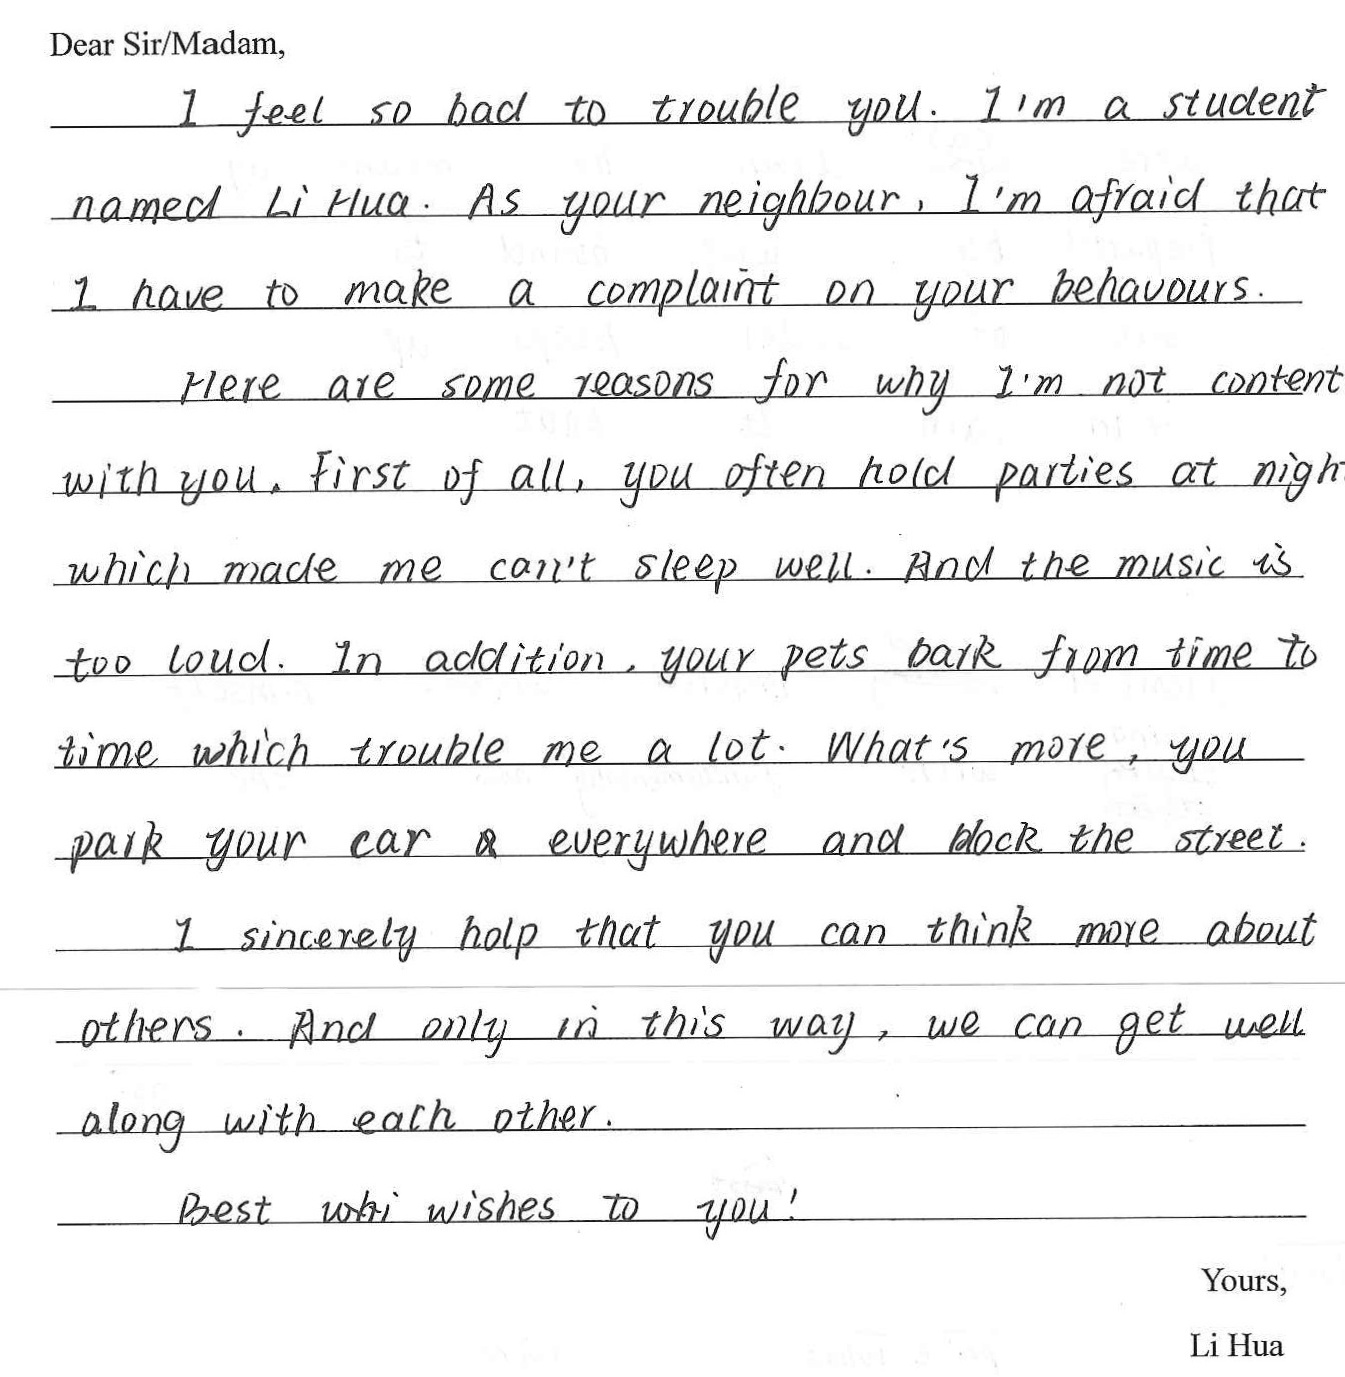 Dear Sir/Madam,
I feel so bad to trouble you. I'm a student
named Li Hua. As your neighbour, I'm afraid that
I have to make a complaint on your behavours.
Here are some reasons for why I'm not content
with you. First of all, you often hold parties at nigh
which made me can't sleep well. And the music is
too loud. In addition, your pets bark from time to
time which trouble me a lot. What's more, you
park your car everywhere and block the street.
I sincerely holp that you can think more about
others. And only in this way, we can get well
along with each other.
Best wishes to you!
Yours,
Li Hua